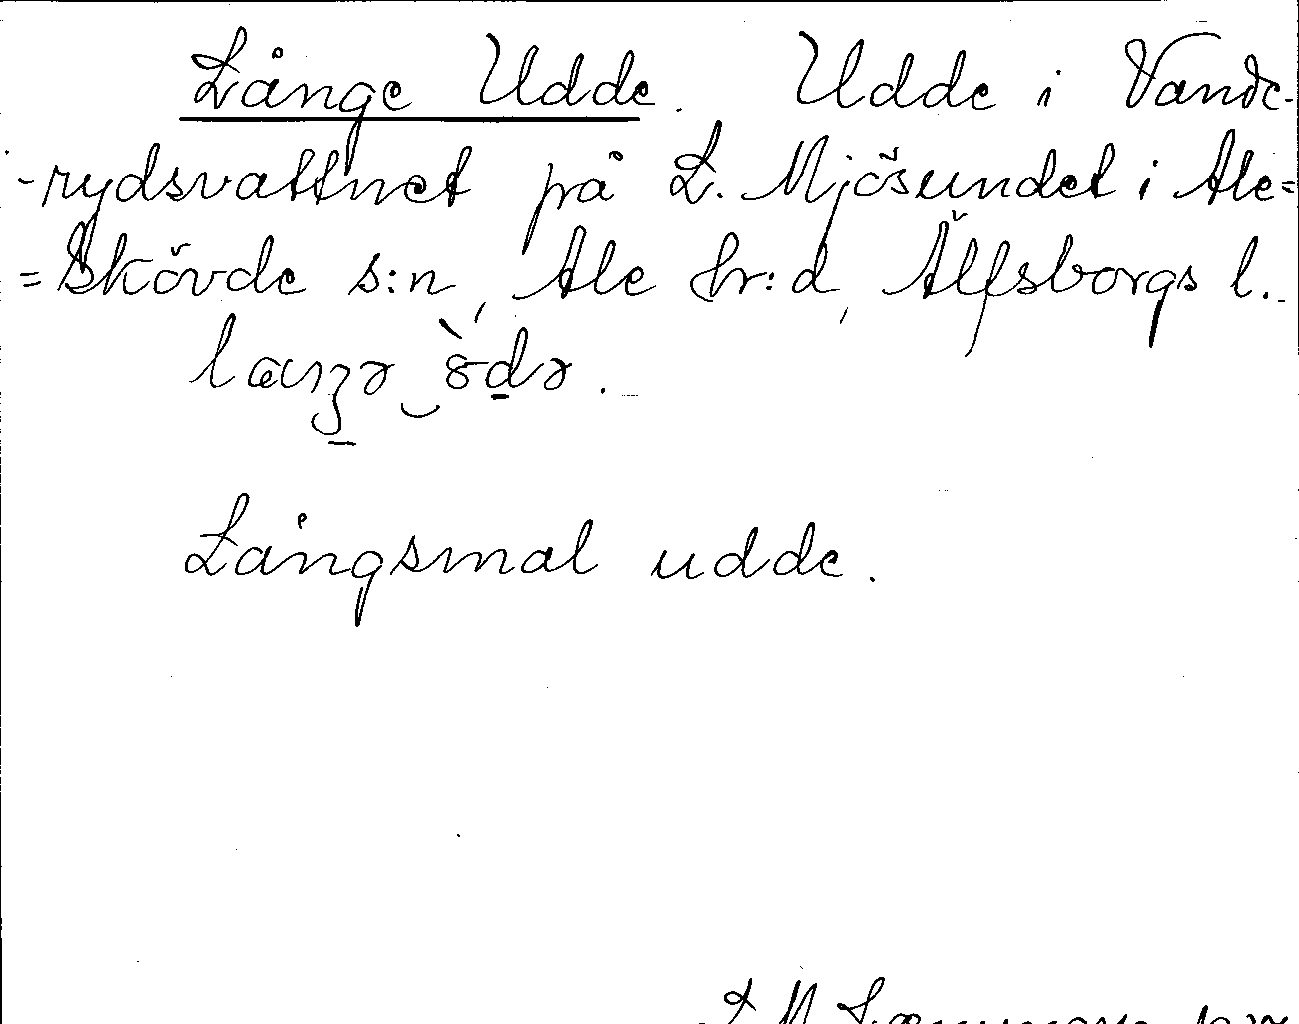 Långe Udde. Udde i Vande-
-rydsvattnet på L. Mjösundet i Ale=
=Skövde s:n, Ale hr:d, Älfsborgs l.
Långsmal udde.